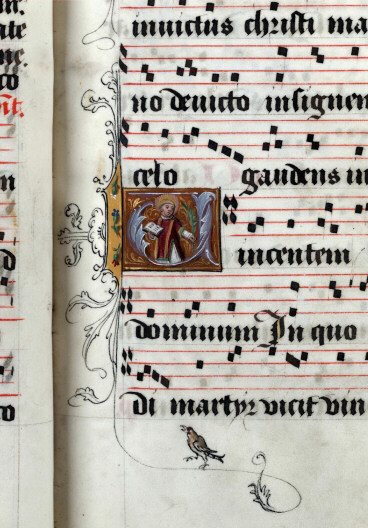 invictus christi ma
no devicto insignem
celo gaudens in
Vincentem
dominum In quo
di martyr vicit vin